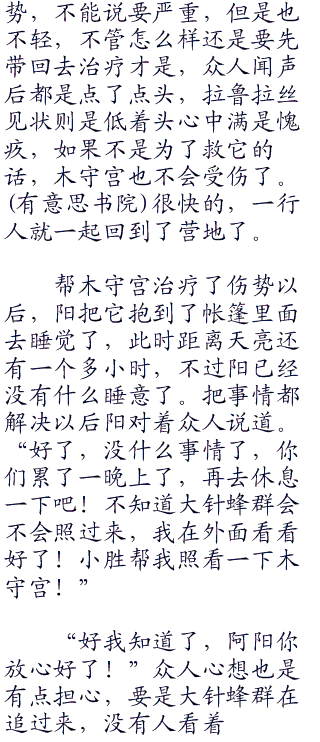 势，不能说要严重，但是也
不轻，不管怎么样还是要先
带回去治疗才是，众人闻声
后都是点了点头，拉鲁拉丝
见状则是低着头心中满是愧
疚，如果不是为了救它的
话，木守宫也不会受伤了。
(有意思书院)很快的，一行
人就一起回到了营地了。
帮木守宫治疗了伤势以
后，阳把它抱到了帐篷里面
去睡觉了，此时距离天亮还
有一个多小时，不过阳已经
没有什么睡意了。把事情都
解决以后阳对着众人说道。
“好了，没什么事情了，你
们累了一晚上了，再去休息
一下吧！不知道大针蜂群会
不会照过来，我在外面看看
好了！小胜帮我照看一下木
守宫！”
“好我知道了，阿阳你
放心好了！”众人心想也是
有点担心，要是大针蜂群在
追过来，没有人看着